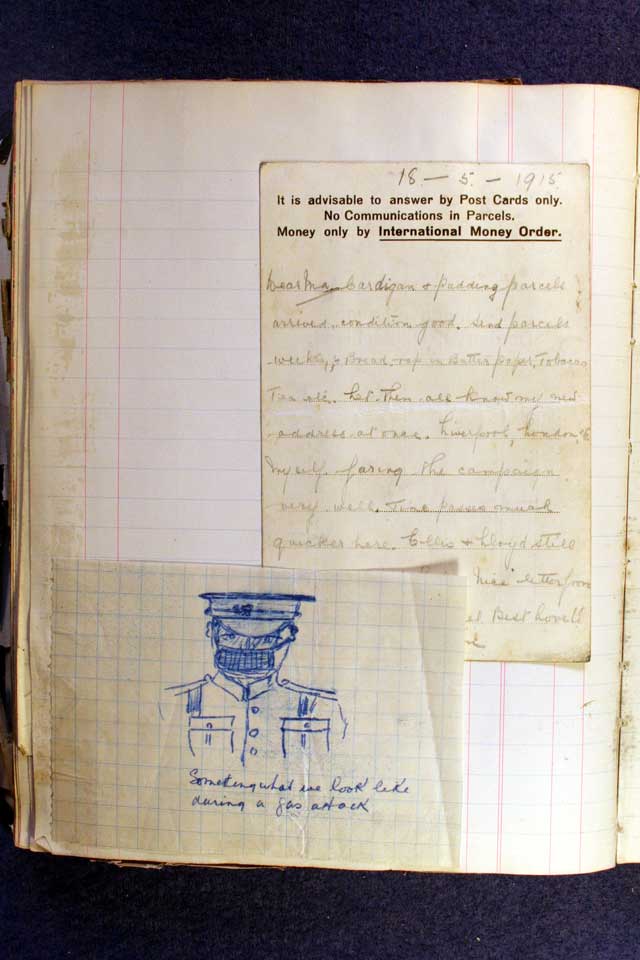 18 - 5 - 1915
It is advisable to answer by Post Cards only.
No Communications in Parcels.
Money only by International Money Order.
Dear Ma. Cardigan & pudding parcels
arrived, condition good. Send parcels
weekly, Bread, rap in Butter paper, Tobacco
Tea etc. Let them all know my new
address at once. Liverpool, London, &
myself faring the campaign
very well. Time passes much
quicker here. Ellis & Lloyd still
Nice letter from
Best love
Something what we look like
during a gas attack